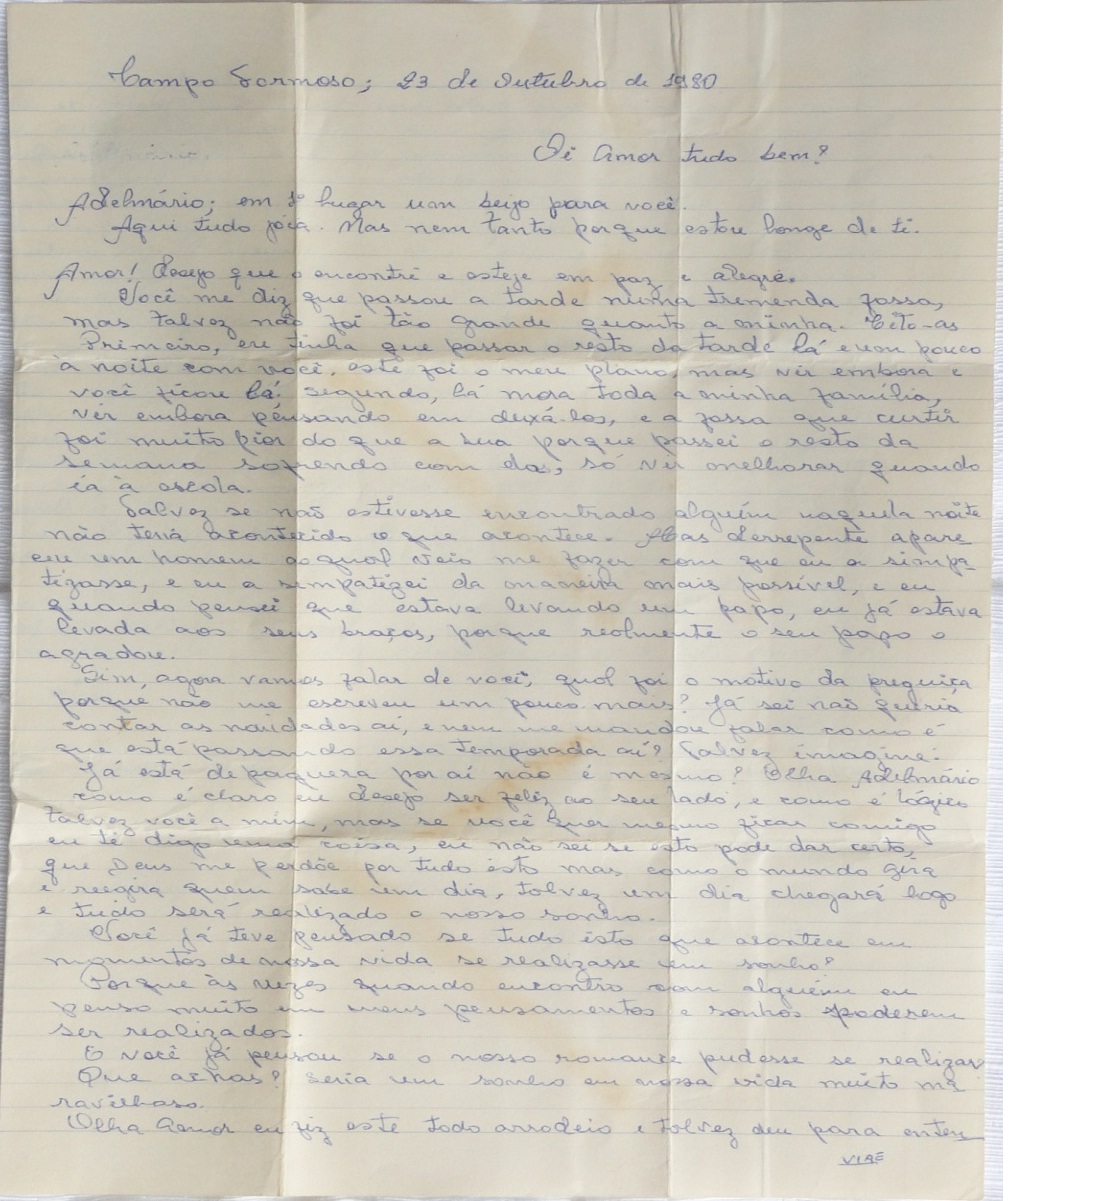 Campo Formoso; 23 de Outubro de 1980
Oi Amor tudo bem?
Adelmário; em 1º lugar um beijo para você.
Aqui tudo jóia. Mas nem tanto porque estou longe de ti.
Amor! Desejo que o encontre e esteje em paz e alegre.
Você me diz que passou a tarde numa tremenda fossa,
mas talvez não foi tão grande quanto a minha. Cito-as
Primeiro, eu tinha que passar o resto da tarde lá e um pouco
à noite com você, este foi o meu plano, mas vir embora e
você ficou lá. Segundo, lá mora toda a minha família,
vir embora pensando em deixá-los, e a fossa que curtir
foi muito pior do que a sua porque passei o resto da
semana sofrendo com dos, só vir melhorar quando
ia à escola.
Talvez se não estivesse encontrado alguém naquela noite
não terá acontecido o que acontece. Mas derrepente apare
ceu um homem ao qual veio me fazer com que eu o simpa
tizasse, e eu a simpatizei da maneira mais possível, e eu
quando pensei que estava levando um papo, eu já estava
levada aos seus braços, porque realmente o seu papo o
agradou.
Sim, agora vamos falar de você, qual foi o motivo da preguiça
porque não me escreveu um pouco mais? Já sei não queria
contar as novidades aí, e nem me mandou falar como é
que está passando essa temporada aí? Talvez imagine:
Já está de paquera por aí não é mesmo? Olha Adelmário
como é claro eu desejo ser feliz ao seu lado, e como é lógico
talvez você a mim, mas se você quer mesmo ficar comigo
eu té digo uma coisa, eu não sei se isto pode dar certo,
que Deus me perdõe por tudo isto mas como o mundo gira
e reegira quem sabe um dia, talvez um dia chegará logo
e tudo será realizado o nosso sonho.
Você já teve pensado se tudo isto que acontece em
momentos de nossa vida se realizasse em sonho?
Porque às vezes quando encontro com alguém eu
penso muito em meus pensamentos e sonhos poderem
ser realizados.
E você já pensou se o nosso romance pudesse se realizar
Que achas? Seria um sonho em nossa vida muito ma
ravilhoso.
Olha Amor eu fiz este todo arrodeio e talvez deu para enten
VIRE